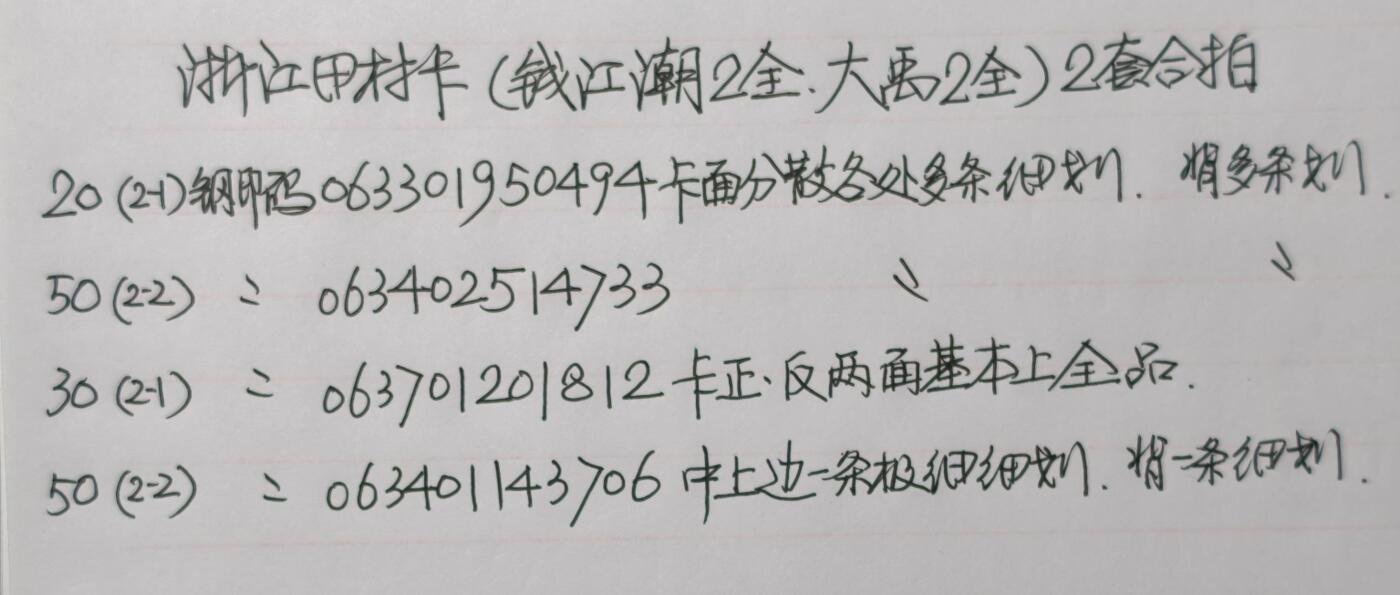 浙江田村卡(钱江潮2全.大禹2全)2套合拍
20(2-1)钢印码063301950494卡面分散各处多条细划.背多条划.
50(2-2) 〃 063402514733 〃 〃
30(2-1) 〃 063701201812卡正.反两面基本上全品.
50(2-2) 〃 063401143706中上边一条极细细划.背一条细划.